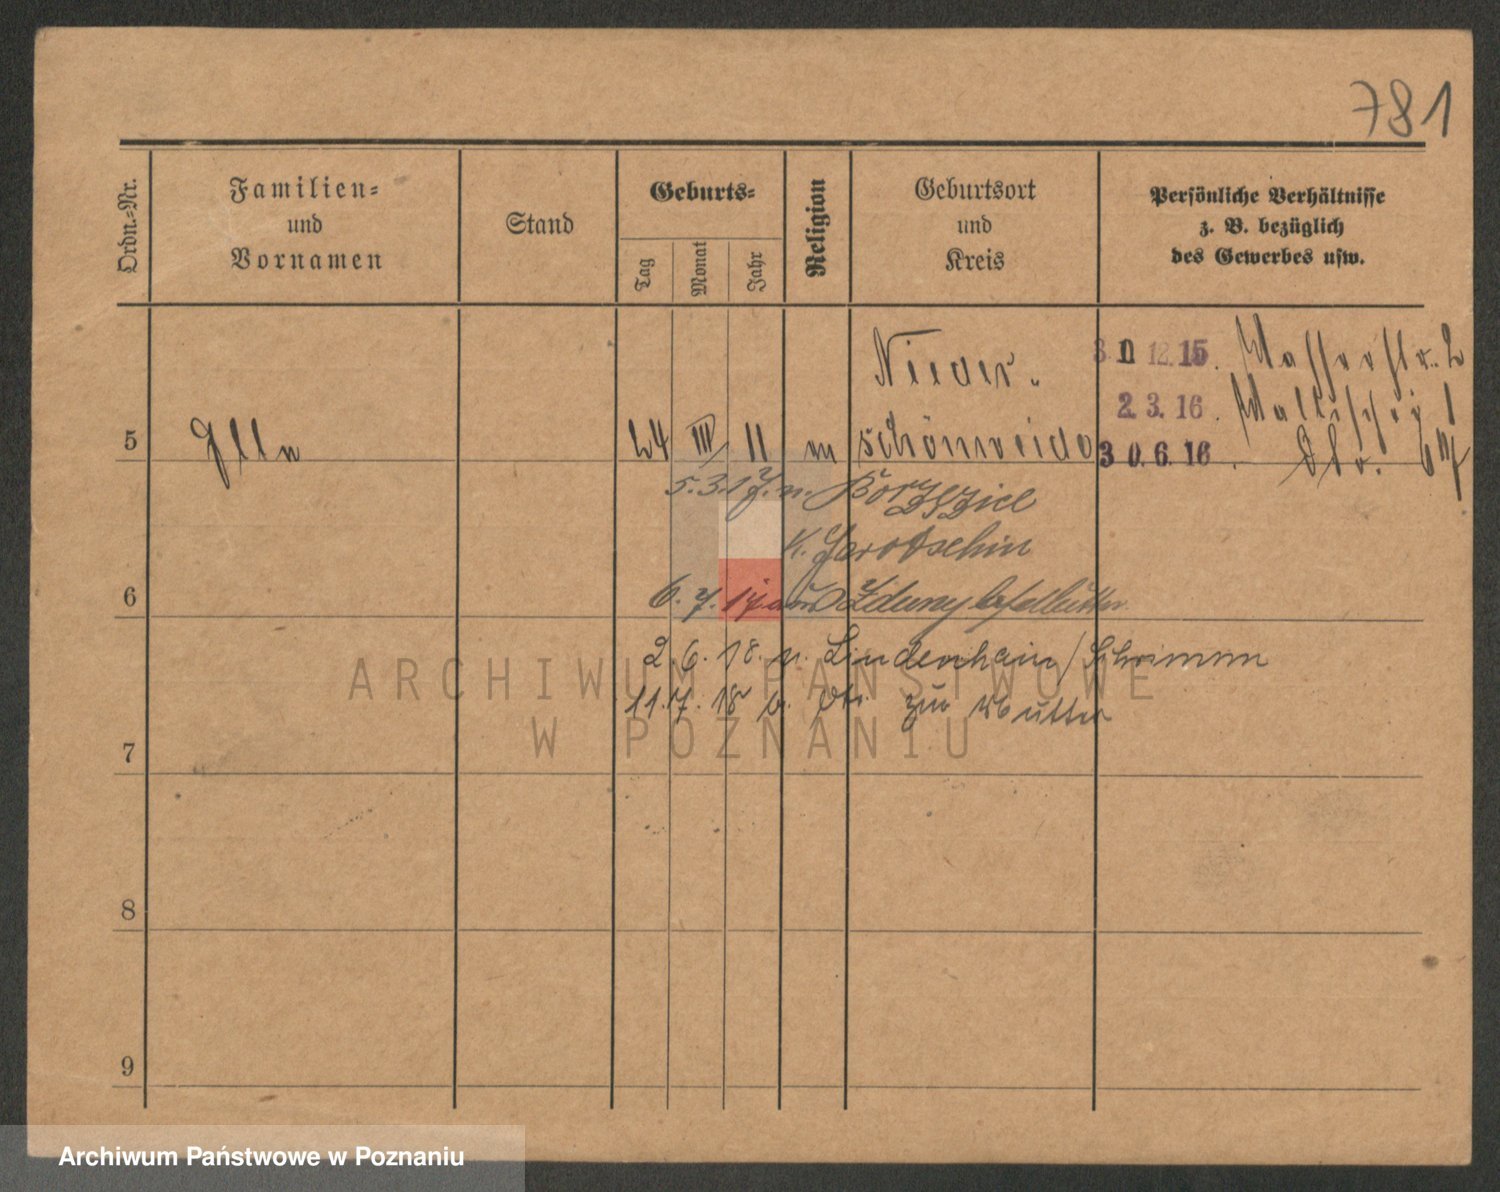 781
Ordn.-Nr.
Familien-
und
Vornamen
Stand
Geburts-
Tag
Monat
Jahr
Religion
Geburtsort
und
Kreis
Persönliche Verhältnisse
z. B. bezüglich
des Gewerbes usw.
Nieder-
30 12. 15. Wasserstr. 2
2. 3. 16. Wallischei 1
5 24 III 11 schönweide 30.6.16.
5.3.17. n.
K. Jarotschin
6 6. 7. 17 aus Zduny
2. 6. 18. n. Lindenhain / Schrimm
11. 7. 18 zur Mutter
7
8
9
ARCHIWUM PAŃSTWOWE
W POZNANIU
Archiwum Państwowe w Poznaniu